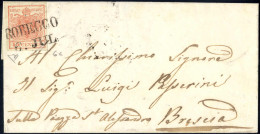 ROBECCO
JUL.
Al Chiarissimo Signore
Il Sig.r Luigi Peperini
Sulla Piazza St Alessandro Brescia